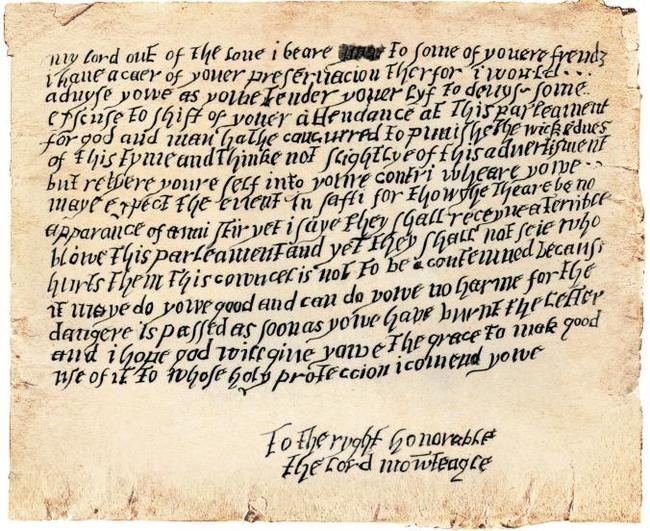 my lord out of the loue i beare to some of youere frendz
i haue a caer of youer preseruacion therfor i would...
aduyse yowe as yowe tender youer lyf to deuys some
exscuse to shift of youer attendance at this parleament
for god and man hathe concurred to punishe the wickednes
of this tyme and thinke not slightlye of this aduertisment
but retyere youre self into youre contri wheare yowe..
maye expect the euent in safti for thowghe theare be no
apparance of anni stir yet i saye they shall receyue a terrible
blowe this parleament and yet they shall not seie who
hurts them this cowncel is not to be contemned because
it maye do yowe good and can do yowe no harme for the
dangere is passed as soon as yowe have burnt the letter
and i hope god will give yowe the grace to mak good
use of it to whose holy proteccion i comend yowe
To the ryght honorable
the lord mowteagle